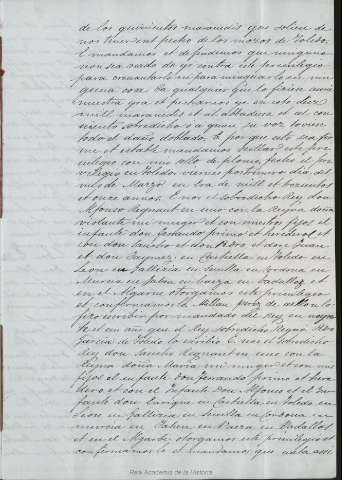 de los quinientos maravedis que solien de
nos tener en el pecho de los moros de Toledo
E mandamos et defendemos que ninguno
non sea osado de yr contra este privilegio
para crebantarlo ni para minguarlo en nin
guna cosa Ca qualquier que lo ficiese aurie
nuestra yra et pecharnos ye en coto diez
mill maravedis et al Abadesa et al con
vento sobredicho o a quien su voz toviese
todo el daño doblado. E por que esto sea fir
me et estable mandamos seellar este pri
vilegio con nuestro sello de plomo, fecho el pri
vilegio en Toledo viernes postrimero dia del
mes de Marzo en Era de mill et trecientos
et once annos. E nos el sobredicho Rey don
Alfonso regnant en uno con la Reyna doña
Violante mi muger et con nuestros fijos el
infante don Ferrando primero et heredero et
con don Sancho et don Pedro et don Juan
et don Jaymes en Castiella en Toledo en
Leon en Gallizia en Sevilla en Cordova en
Murcia en Jahen en Baeza en Badalloz et
en el Algarve otorgamos este privilegio
et confirmamoslo Millan perez de aellon lo
fizo escribir por mandado del Rey en veyn
te et un año que el Rey sobredicho regnó Pero
Garcia de Toledo lo escribió E nos el sobredicho
Rey don Sancho Regnant en uno con la
Reyna doña Maria mi muger et con mis
fijos el infante don Ferrando primero et here
dero et con el Infante don Alfonso et el In
fante don Enrique en Castiella en Toledo en
Leon en Gallizia en Sevilla en Cordova en
Murcia en Jahen en Baeza en Badalloz
et en el Algarbe otorgamos este privilegio et
confirmamoslo et mandamos que vala assi
Real Academia de la Historia